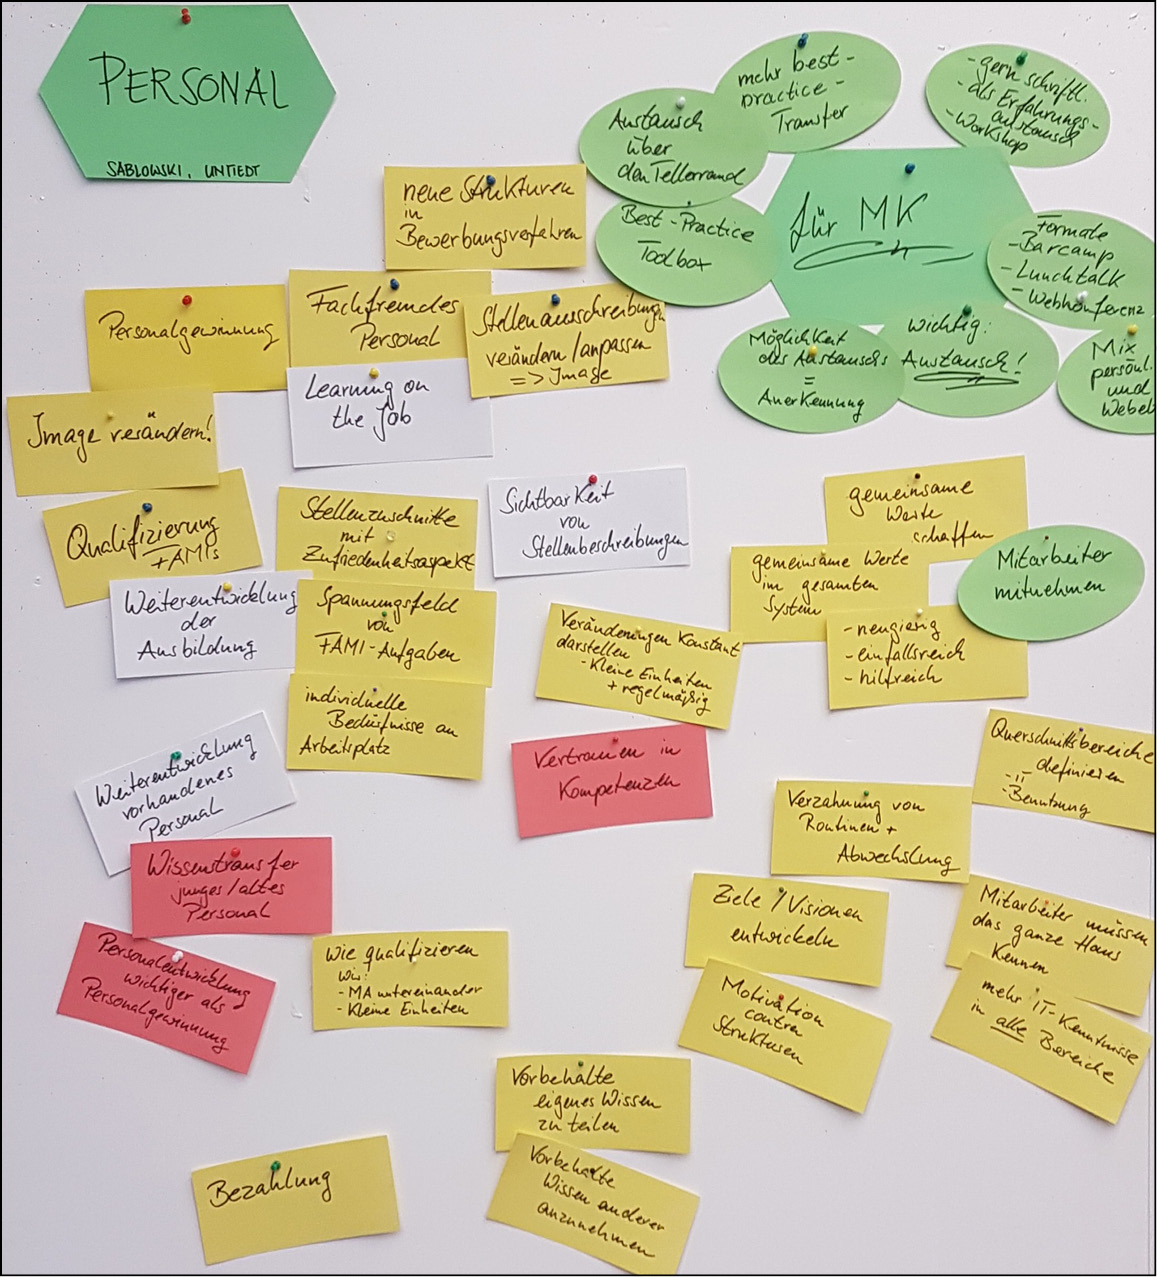 PERSONAL
SABLOWSKI, UNTIEDT
mehr best-
practice-
Transfer
- gern schriftl.
- als Erfahrungs-
austausch
- Workshop
Austausch
über
den Tellerrand
Best-Practice
Toolbox
für MK
Formate
- Barcamp
- Lunchtalk
- Webkonferenz
Möglichkeit
des Austauschs
=
Anerkennung
wichtig:
Austausch!
Mix
persönl.
und
Webeb
neue Strukturen
in
Bewerbungsverfahren
Personalgewinnung
Fachfremdes
Personal
Stellenausschreibung
verändern/anpassen
=> Image
Learning on
the Job
Image verändern!
Qualifizierung
FAMIs
Stellenzuschnitte
mit
Zufriedenheitsaspekt
Sichtbarkeit
von
Stellenbeschreibungen
gemeinsame
Werte
schaffen
gemeinsame Werte
im gesamten
System
Mitarbeiter
mitnehmen
- neugierig
- einfallsreich
- hilfreich
Weiterentwicklung
der
Ausbildung
Spannungsfeld
von
FAMI-Aufgaben
individuelle
Bedürfnisse an
Arbeitsplatz
Veränderungen konstant
darstellen
- kleine Einheiten
+ regelmäßig
Vertrauen in
Kompetenzen
Querschnittsbereiche
definieren
- "
- Benutzung
Verzahnung von
Routinen +
Abwechslung
Weiterentwicklung
vorhandenes
Personal
Wissenstransfer
junges/altes
Personal
Personalentwicklung
wichtiger als
Personalgewinnung
Wie qualifizieren
wir:
- MA untereinander
- kleine Einheiten
Ziele/Visionen
entwickeln
Mitarbeiter müssen
das ganze Haus
kennen
Motivation
contra
Strukturen
mehr IT-Kenntnisse
in alle Bereiche
Vorbehalte
eigenes Wissen
zu teilen
Vorbehalte
Wissen anderer
anzunehmen
Bezahlung